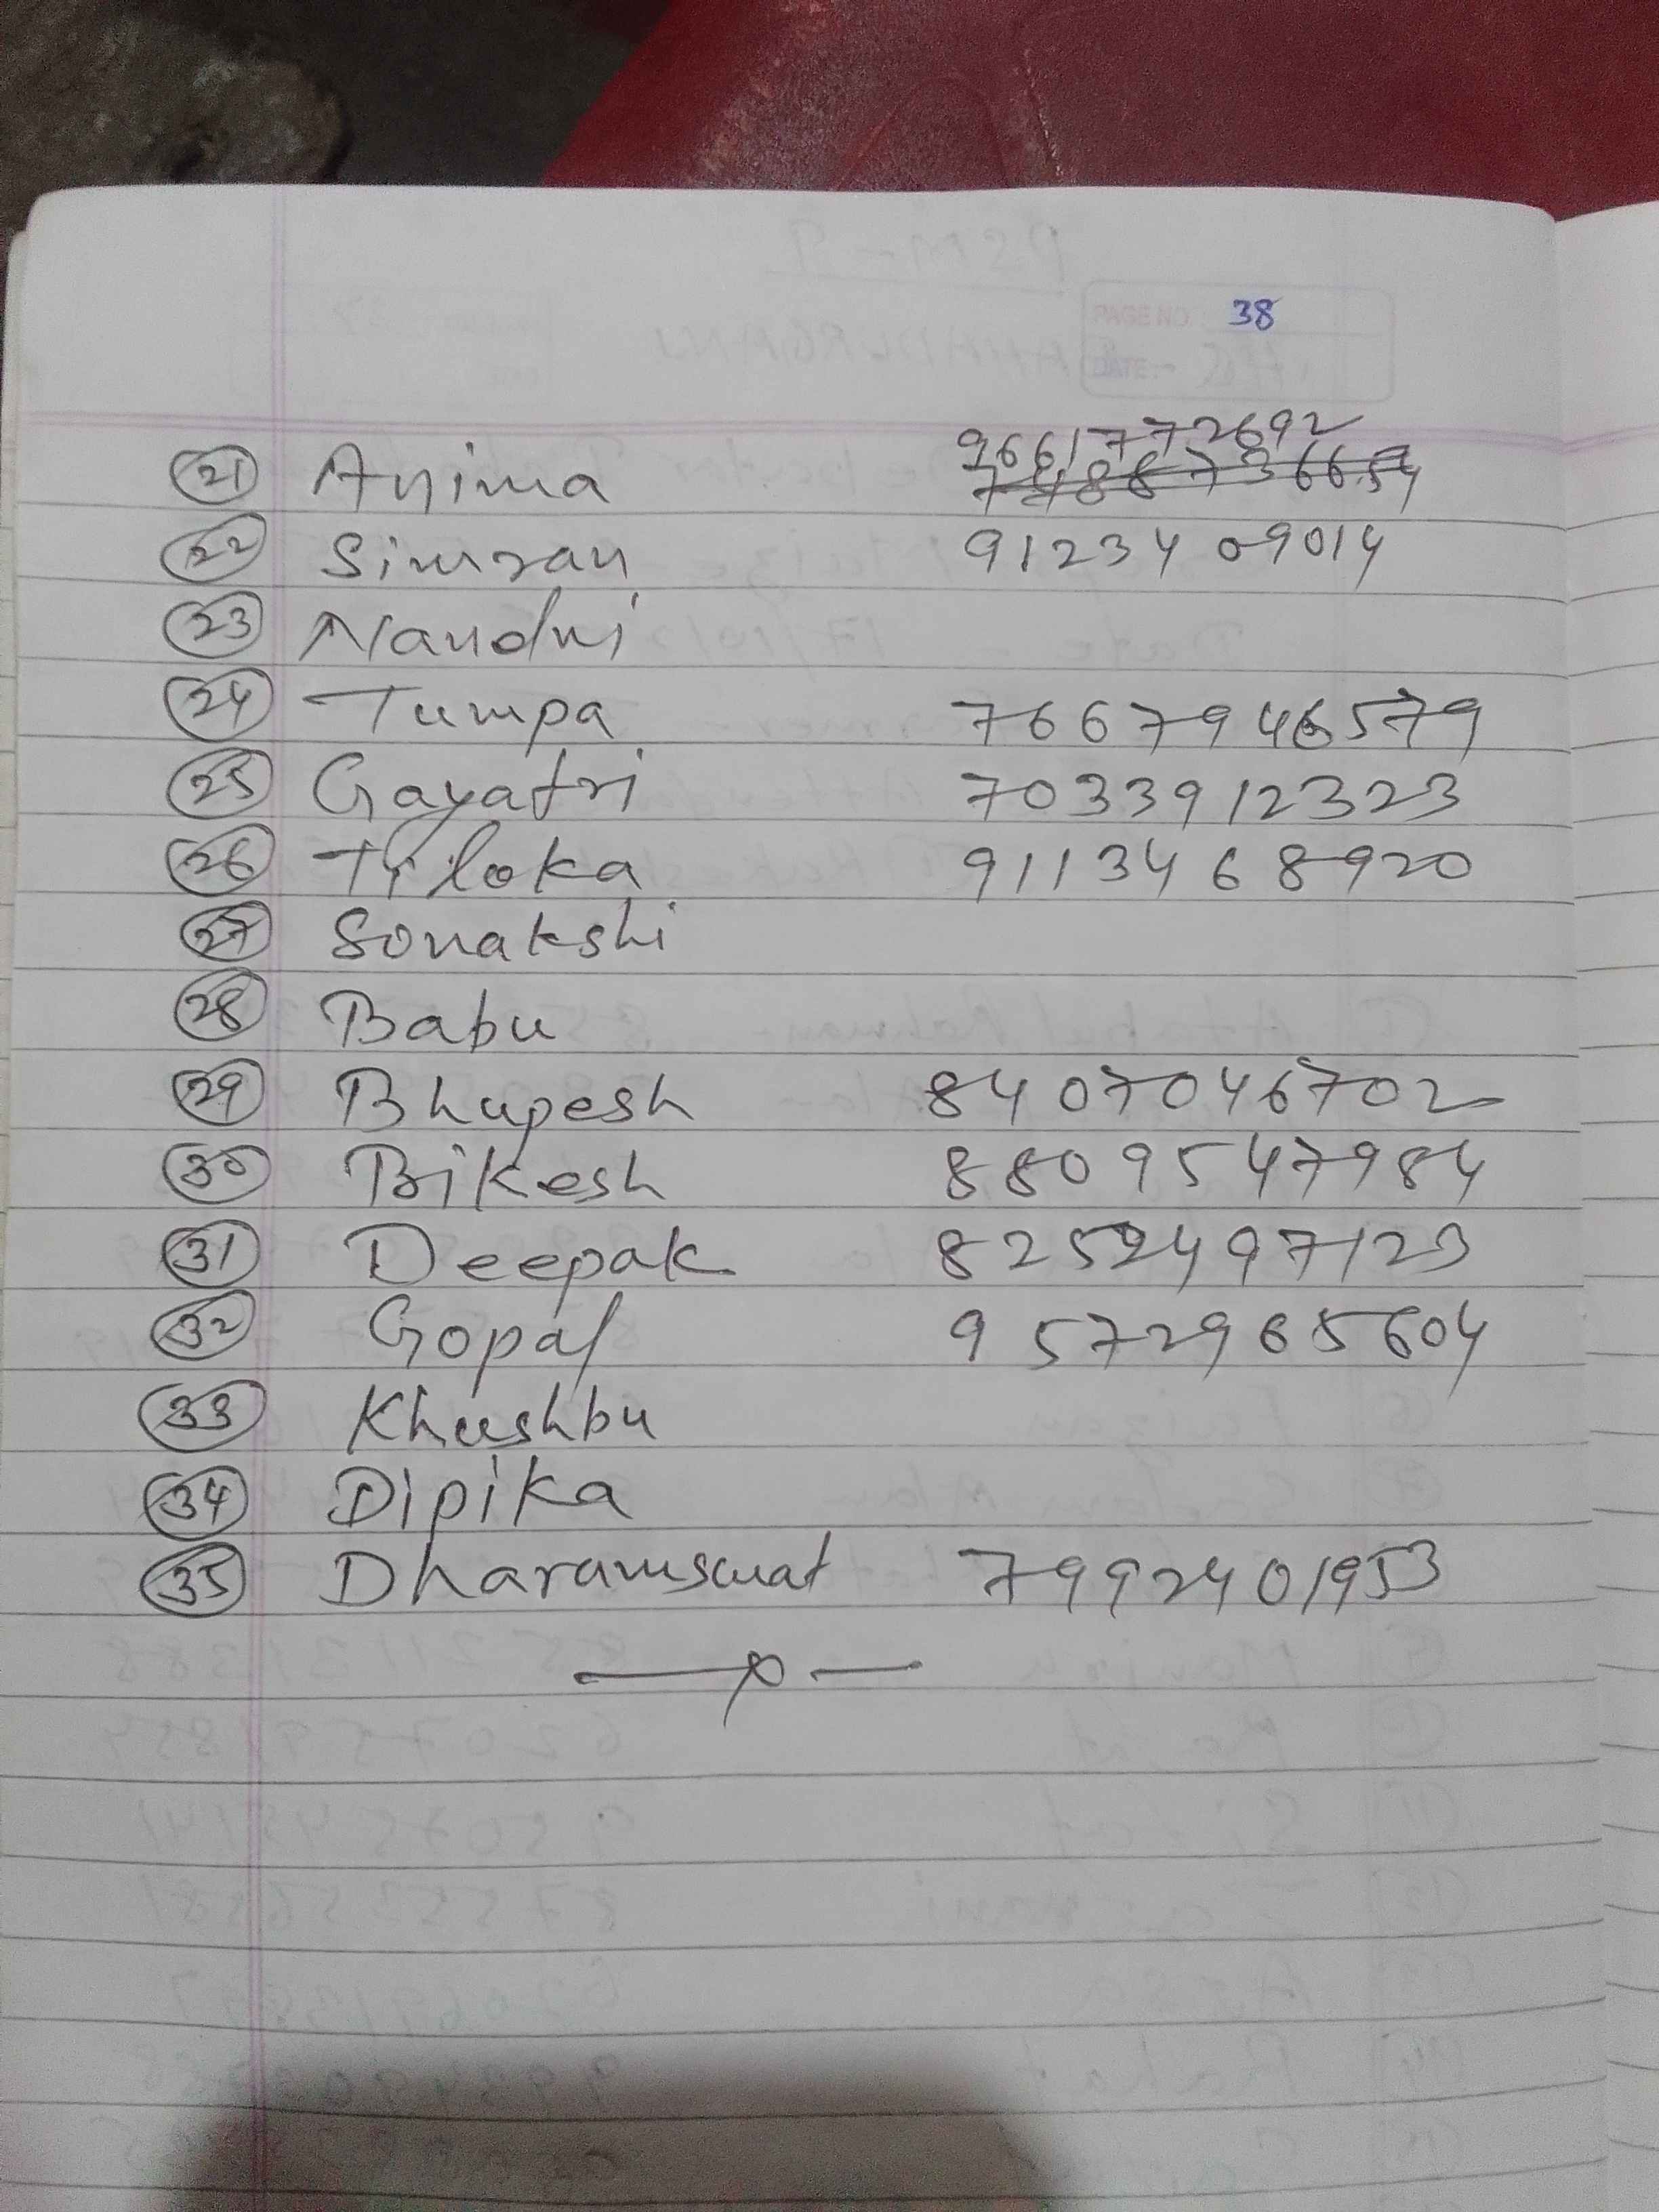 PAGE NO. 38
DATE:-
9661772692
(21) Anima
(22) Simran 9123409014
(23) Nandni
(24) Tumpa 7667946579
(25) Gayatri 7033912323
(26) Triloka 9113468920
(27) Sonakshi
(28) Babu
(29) Bhupesh 8407046702
(30) Bikesh 8809547984
(31) Deepak 8252497123
(32) Gopal 9572965604
(33) Khushbu
(34) Dipika
(35) Dharamswat 7992401953